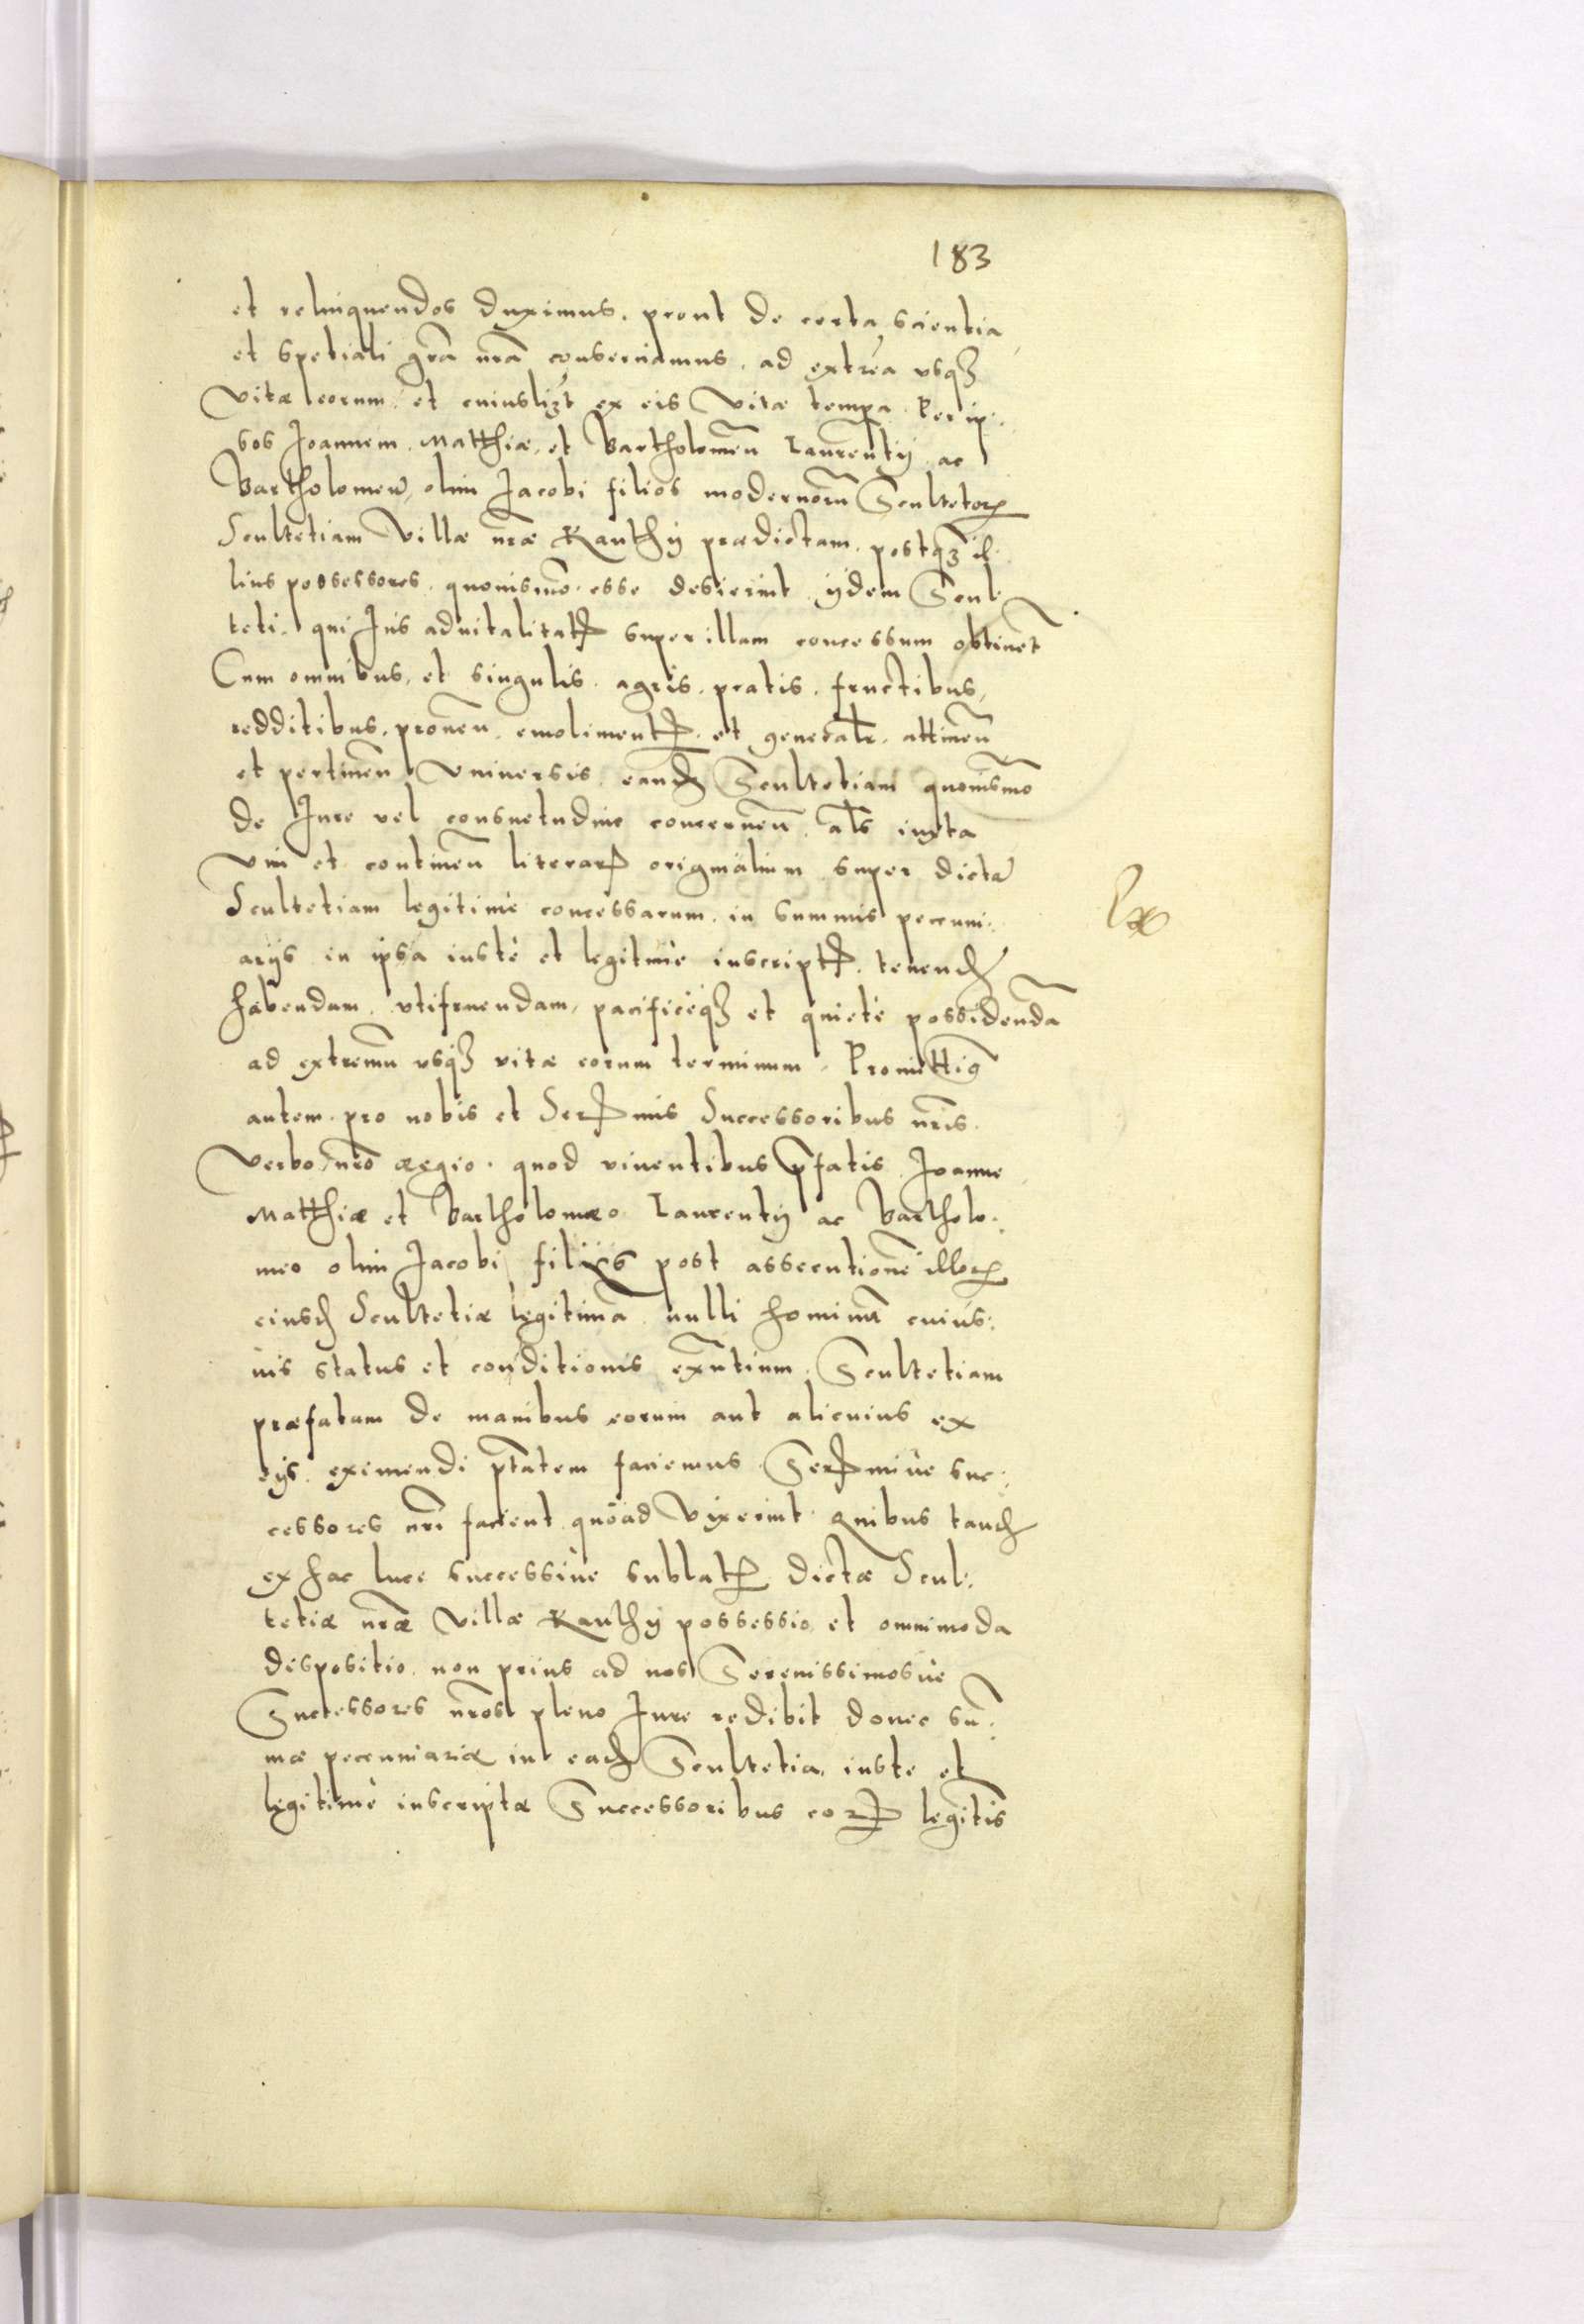 183
et relinquendos duximus. prout de certa scientia
et spetiali gra͂ nra͂ conservamus. ad extre͂a vsqȝ
Vitæ eorum. et cuiuslizt ex eis Vitæ tempa. Per ip:
sos Joannem. Matthiæ, et Bartholome͂u Laurentij ac
Bartholomeu͂, olim Jacobi filios modernoru͂ Scultetorꝝ
Scultetiam Villæ nræ͂ Kanthy prædictam. postqȝ il:
lius possessores. quouismo͂. esse desierint ijdem Scul:
teti. qui Jus aduitalitatꝭ super illam concessum obtinet͂
Cum omnibus, et singulis. agris. pratis. fructibus,
redditibus. prouen͂. emolimentꝭ. et generalr͂. attinen͂
et pertinen͂ Vniuersis. eandꝫ Scultetiam quouismo͂
de Jure vel consuetudine concernen͂. als͂ iuxta
Vim et continen͂ literarꝝ originalium super dicta͂
Scultetiam legitimè concessarum. in summis pecuni:
arijs in ipsa iustè et legitimè inscriptꝭ. tenendꝫ
habendam. vtifruendam, pacificèqȝ et quietè possidenda͂
ad extremu͂ vsqȝ vitæ eorum terminum. Promittiꝰ
autem. pro nobis et Serꝭmis Successoribus nr͂is.
Verbo nr͂o ægio. quod viuentibus p͂fatis Joanne
Matthiæ et Bartholomæo Laurentij ac Bartholo:
meo olim Jacobi filijs post assecutione͂ illorꝝ
eiusdꝫ Scultetiæ legitima͂ nulli hominu͂ cuius:
uis status et conditionis exn͂tium. Scultetiam
præfatam de manibus eorum aut alicuius ex
eijs. eximendi pt͂atem faciemus. Serꝭmiùe suc:
cessores nr͂i facient. quòad Vixerint. Quibus tandꝫ
ex hac luce successiùe sublatꝭ. dictæ Scul:
tetiæ nr͂æ Villæ Kanthy possessio, et omnimoda
dispositio. non prius ad nos Serenissimosùe
Successores nr͂os pleno Jure redibit donec su͂:
mæ pecuniariæ in eadꝫ Scultetia. iuste et
legitimè inscriptæ Successoribus eorꝝ legitis͂